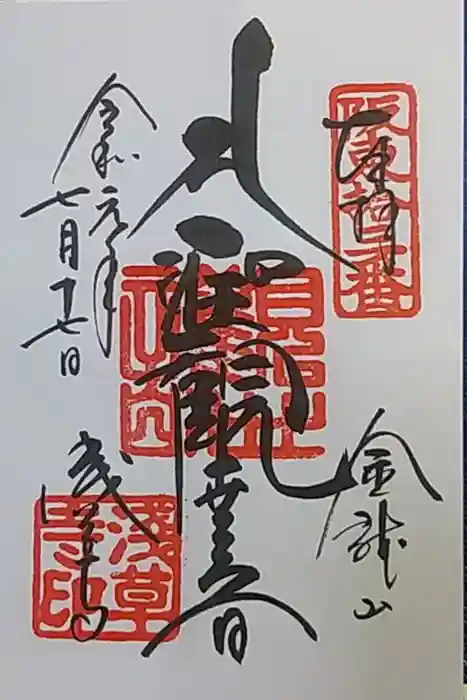 奉拝
坂東拾三番
金龍山
聖観世音
浅草寺
浅草寺印
令和元年
七月十七日